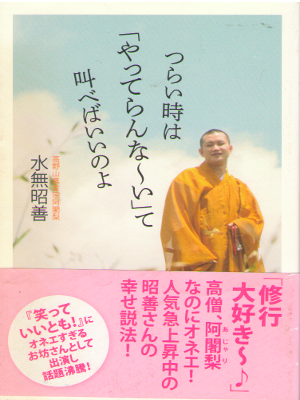 つらい時は
「やってらんな～い」て
叫べばいいのよ
水無昭善
「修行
大好き～♪」
高僧、阿闍梨
あじゃり
なのにオネエ！
人気急上昇中の
昭善さんの
幸せ説法！
『笑って
いいとも！』に
オネエすぎる
お坊さんとして
出演し
話題沸騰！